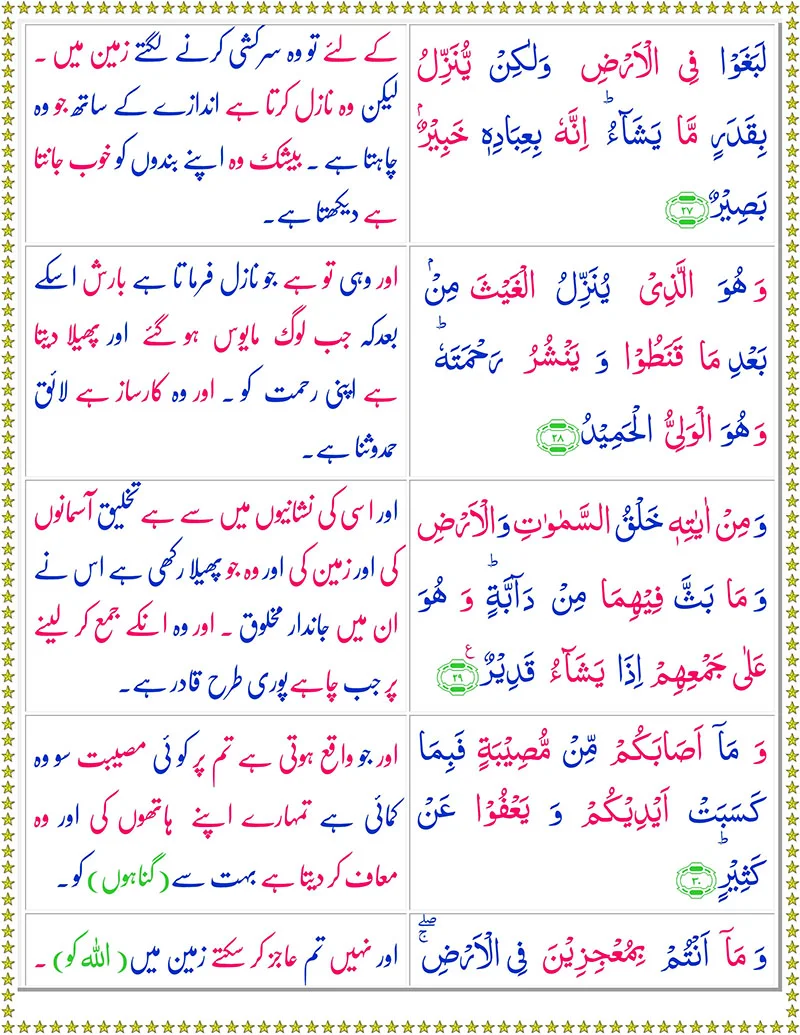 لَبَغَوْا فِی الْاَرْضِ وَلٰكِنْ یُّنَزِّلُ
بِقَدَرٍ مَّا یَشَآءُ ؕ اِنَّهٗ بِعِبَادِهٖ خَبِیْرٌۢ
بَصِیْرٌ ۲۷
کے لئے تو وہ سرکشی کرنے لگتے زمین میں ۔
لیکن وہ نازل کرتا ہے اندازے کے ساتھ جو وہ
چاہتا ہے ۔ بیشک وہ اپنے بندوں کو خوب جانتا
ہے دیکھتا ہے۔
وَ هُوَ الَّذِیْ یُنَزِّلُ الْغَیْثَ مِنْۢ
بَعْدِ مَا قَنَطُوْا وَ یَنْشُرُ رَحْمَتَهٗ ؕ
وَ هُوَ الْوَلِیُّ الْحَمِیْدُ ۲۸
اور وہی تو ہے جو نازل فرماتا ہے بارش اسکے
بعدکہ جب لوگ مایوس ہو گئے اور پھیلا دیتا
ہے اپنی رحمت کو ۔ اور وہ کارساز ہے لائق
حمدوثنا ہے۔
وَ مِنْ اٰیٰتِهٖ خَلْقُ السَّمٰوٰتِ وَ الْاَرْضِ
وَ مَا بَثَّ فِیْهِمَا مِنْ دَآبَّةٍ ؕ وَ هُوَ
عَلٰی جَمْعِهِمْ اِذَا یَشَآءُ قَدِیْرٌ ۲۹ ع
اور اسی کی نشانیوں میں سے ہے تخلیق آسمانوں
کی اور زمین کی اور وہ جو پھیلا رکھی ہے اس نے
ان میں جاندار مخلوق ۔ اور وہ انکے جمع کر لینے
پر جب چاہے پوری طرح قادر ہے۔
وَ مَاۤ اَصَابَكُمْ مِّنْ مُّصِیْبَةٍ فَبِمَا
كَسَبَتْ اَیْدِیْكُمْ وَ یَعْفُوْا عَنْ
كَثِیْرٍ ؕ ۳۰
اور جو واقع ہوتی ہے تم پر کوئی مصیبت سو وہ
کمائی ہے تمہارے اپنے ہاتھوں کی اور وہ
معاف کر دیتا ہے بہت سے (گناہوں) کو۔
وَ مَاۤ اَنْتُمْ بِمُعْجِزِیْنَ فِی الْاَرْضِ ۖۚ
اور نہیں تم عاجز کر سکتے زمین میں (اللہ کو) ۔